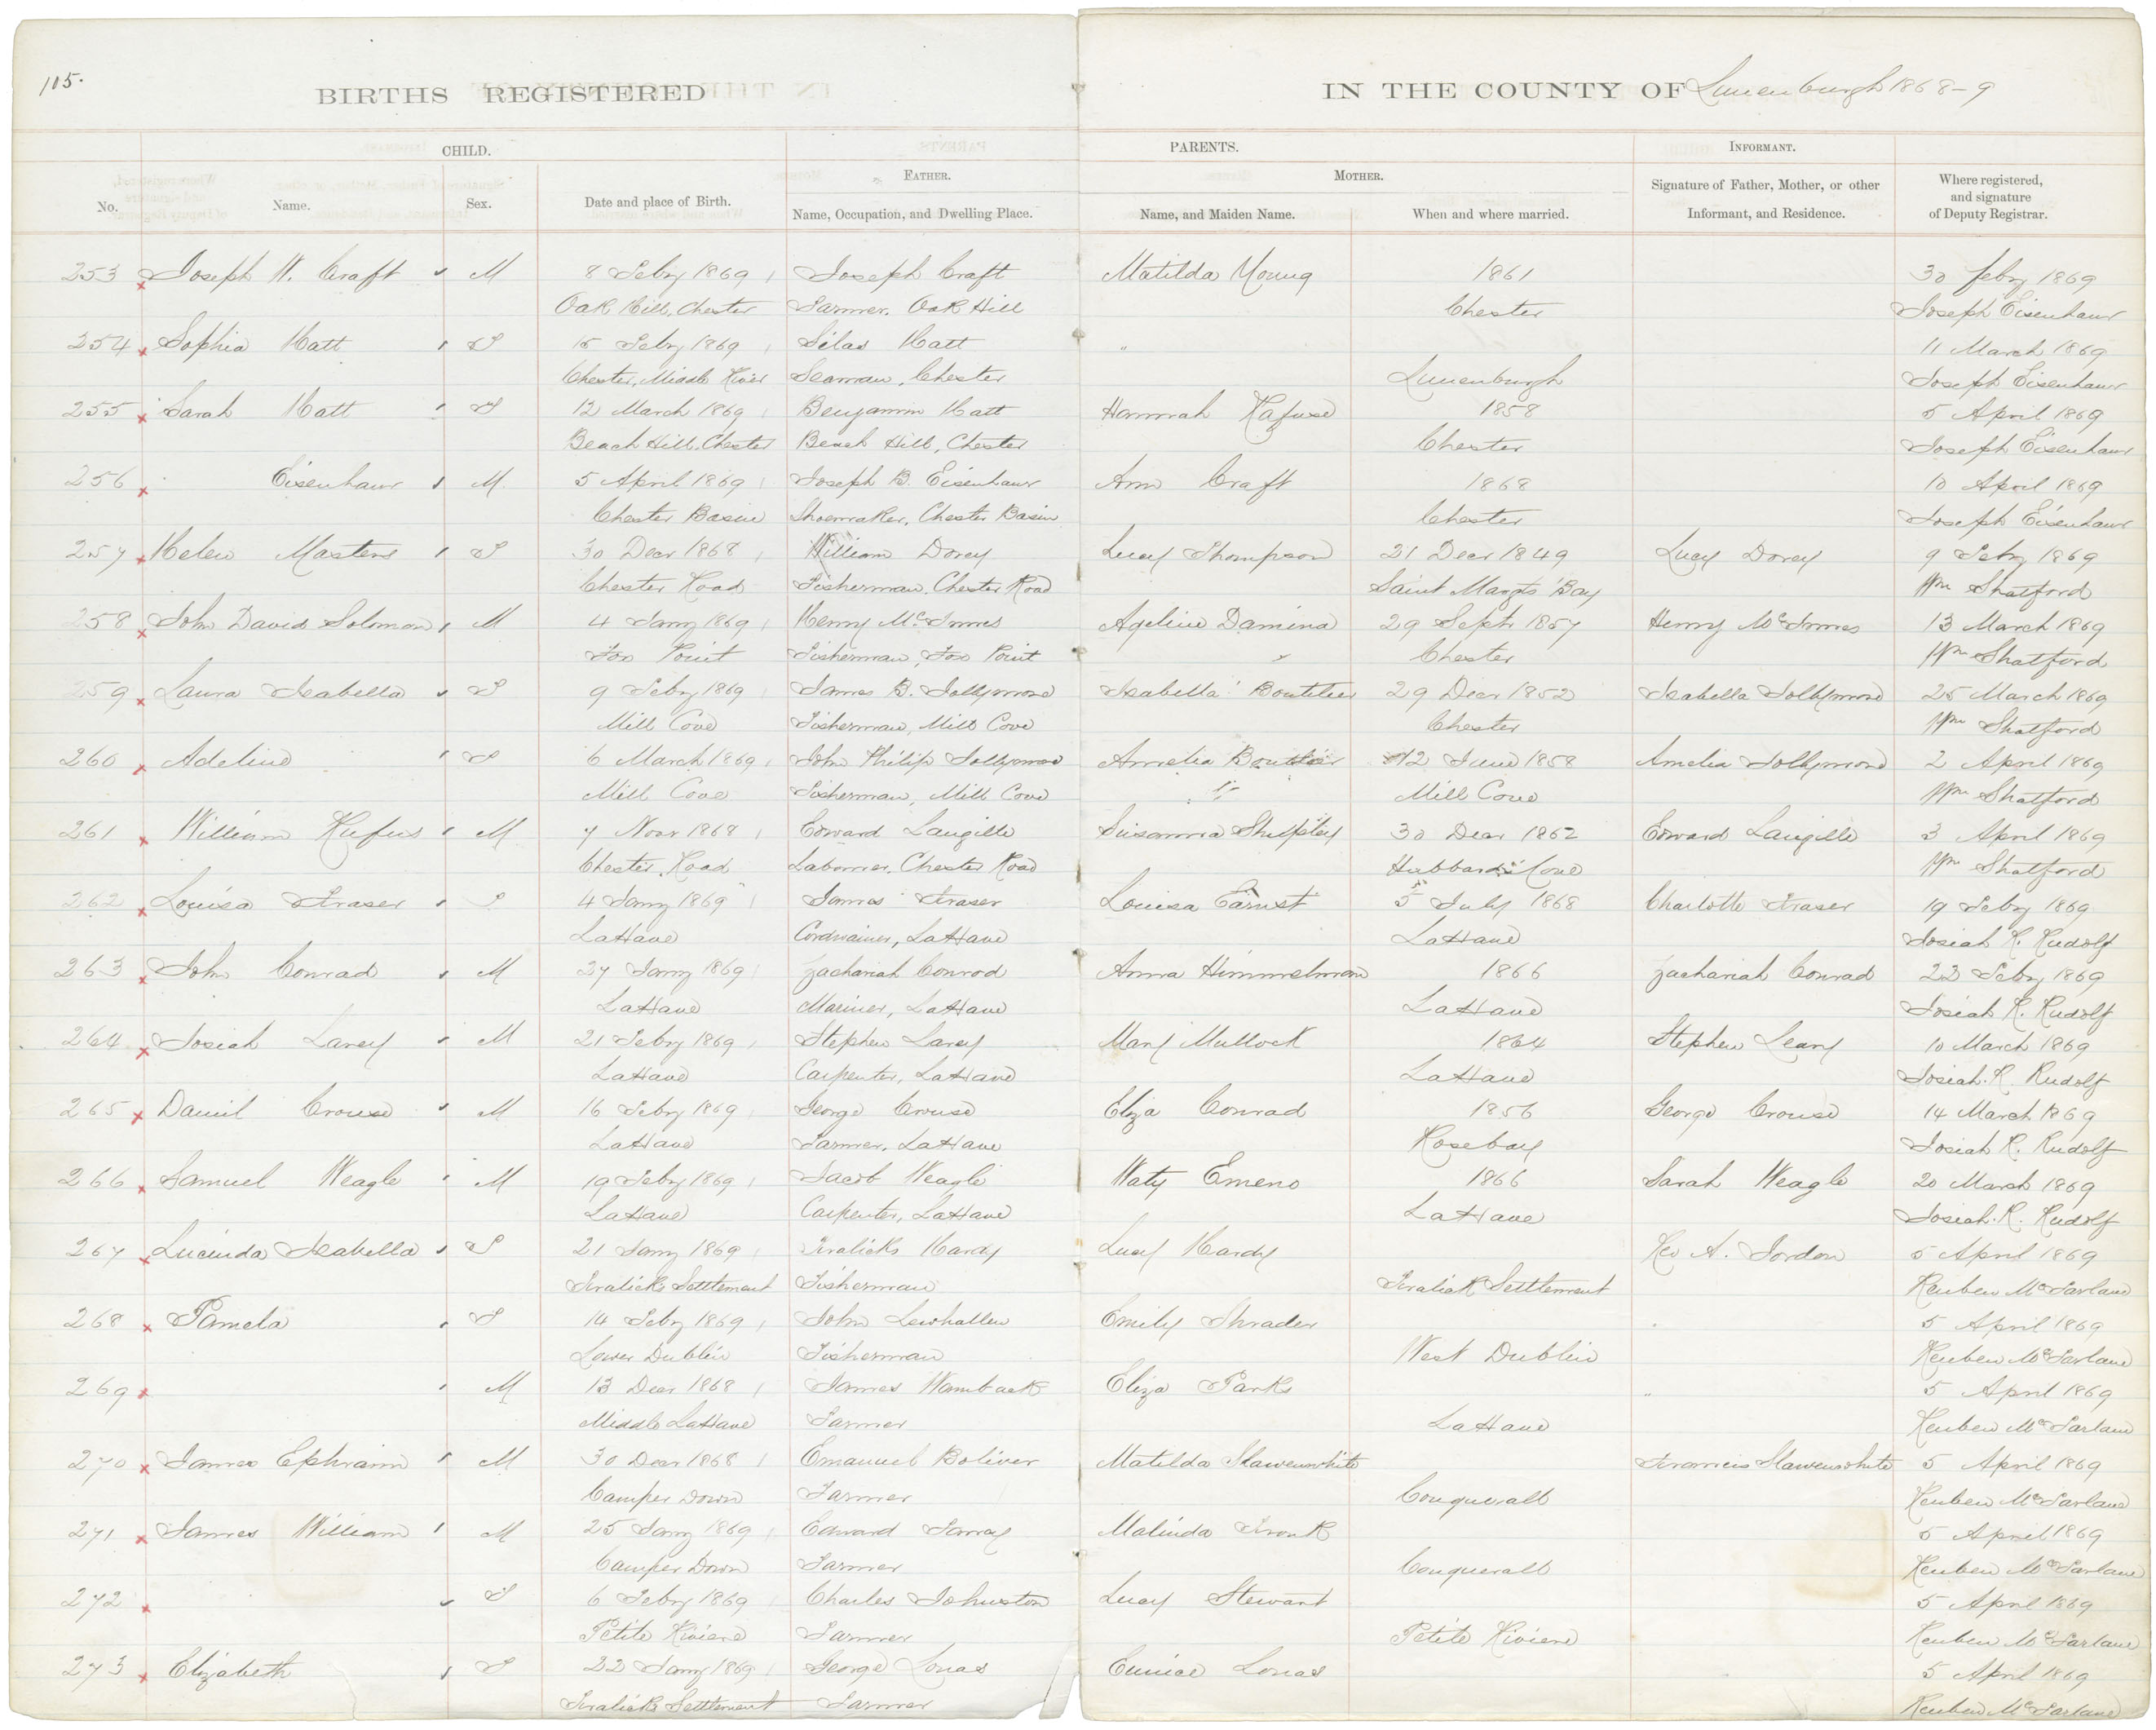 115.
BIRTHS REGISTERED IN THE COUNTY OF Lunenburgh 1868-9
CHILD. PARENTS. INFORMANT.
FATHER. MOTHER.
No. Name. Sex. Date and place of Birth. Name, Occupation, and Dwelling Place. Name, and Maiden Name. When and where married. Signature of Father, Mother, or other Informant, and Residence. Where registered, and signature of Deputy Registrar.
253 Joseph W. Craft M 8 Feby 1869 Joseph Craft Matilda Young 1861 30 Feby 1869
Oak Hill, Chester Farmer. Oak Hill Chester Joseph Eisenhaur
254 Sophia Hatt F 15 Feby 1869 Silas Hatt " 11 March 1869
Chester, Middle River Seaman, Chester Lunenburgh Joseph Eisenhaur
255 Sarah Hatt F 12 March 1869 Benjamin Hatt Hannah Kafuse 1858 5 April 1869
Beach Hill, Chester Beach Hill, Chester Chester Joseph Eisenhaur
256 Eisenhaur M. 5 April 1869 Joseph B. Eisenhaur Ann Craft 1868 10 April 1869
Chester Basin Shoemaker, Chester Basin Chester Joseph Eisenhaur
257 Helen Masters F 30 Decr 1868 William Dorey Lucy Thompson 21 Decr 1849 Lucy Dorey 9 Feby 1869
Chester Road Fisherman, Chester Road Saint Margts Bay Wm Shatford
258 John David Solomon M 4 Jany 1869 Henry McInnes Ageline Damina 29 Septr 1857 Henry McInnes 13 March 1869
Fox Point Fisherman, Fox Point Chester Wm Shatford
259 Laura Isabella F 9 Feby 1869 James B. Jollymore Isabella Boutilier 29 Decr 1852 Isabella Jollymore 25 March 1869
Mill Cove Fisherman, Mill Cove Chester Wm Shatford
260 Adeline F 6 March 1869 John Philip Jollymore Amelia Boutilier 12 June 1858 Amelia Jollymore 2 April 1869
Mill Cove Fisherman, Mill Cove Mill Cove Wm Shatford
261 William Rufus M 7 Novr 1868 Edward Langille Susanna Shupley 30 Decr 1862 Edward Langille 3 April 1869
Chester Road Labourer, Chester Road Hubbards Cove Wm Shatford
262 Louisa Fraser F 4 Jany 1869 James Fraser Louisa Earnst 5 July 1868 Charlotte Fraser 19 Feby 1869
LaHave Cordwainer, LaHave LaHave Josiah R. Rudolf
263 John Conrad M 27 Jany 1869 Zachariah Conrod Anna Himmelman 1866 Zachariah Conrad 22 Feby 1869
LaHave Mariner, LaHave LaHave Josiah R. Rudolf
264 Josiah Larey M 21 Feby 1869 Stephen Larey Mary Mullock 1864 Stephen Leary 10 March 1869
LaHave Carpenter, LaHave LaHave Josiah R. Rudolf
265 Daniel Crouse M 16 Feby 1869 George Crouse Eliza Conrad 1856 George Crouse 14 March 1869
LaHave Farmer, LaHave Rosebay Josiah R. Rudolf
266 Samuel Weagle M 19 Feby 1869 Jacob Weagle Waty Emeno 1866 Sarah Weagle 20 March 1869
LaHave Carpenter, LaHave LaHave Josiah R. Rudolf
267 Lucinda Isabella F 21 Jany 1869 Firalicks Hardy Lucy Hardy Rev A. Jordon 5 April 1869
Firalicks Settlement Fisherman Firalick Settlement Reuben McFarlane
268 Pamela F 14 Feby 1869 John Lewhallen Emily Shrader " 5 April 1869
Lower Dublin Fisherman West Dublin Reuben McFarlane
269 M 13 Decr 1868 James Wamback Eliza Parks " 5 April 1869
Middle LaHave Farmer LaHave Reuben McFarlane
270 James Ephraim M 30 Decr 1868 Emanuel Boliver Matilda Slawenwhite Francis Slawenwhite 5 April 1869
Camper Down Farmer Conquerall Reuben McFarlane
271 James William M 25 Jany 1869 Edward Malinda Fronk 5 April 1869
Camper Down Farmer Conquerall Reuben McFarlane
272 F 6 Feby 1869 Charles Johnston Lucy Stewart 5 April 1869
Petite Riviere Farmer Petite Riviere Reuben McFarlane
273 Elizabeth F 22 Jany 1869 George Lonas Eunice Lonas 5 April 1869
Firalicks Settlement Farmer Reuben McFarlane